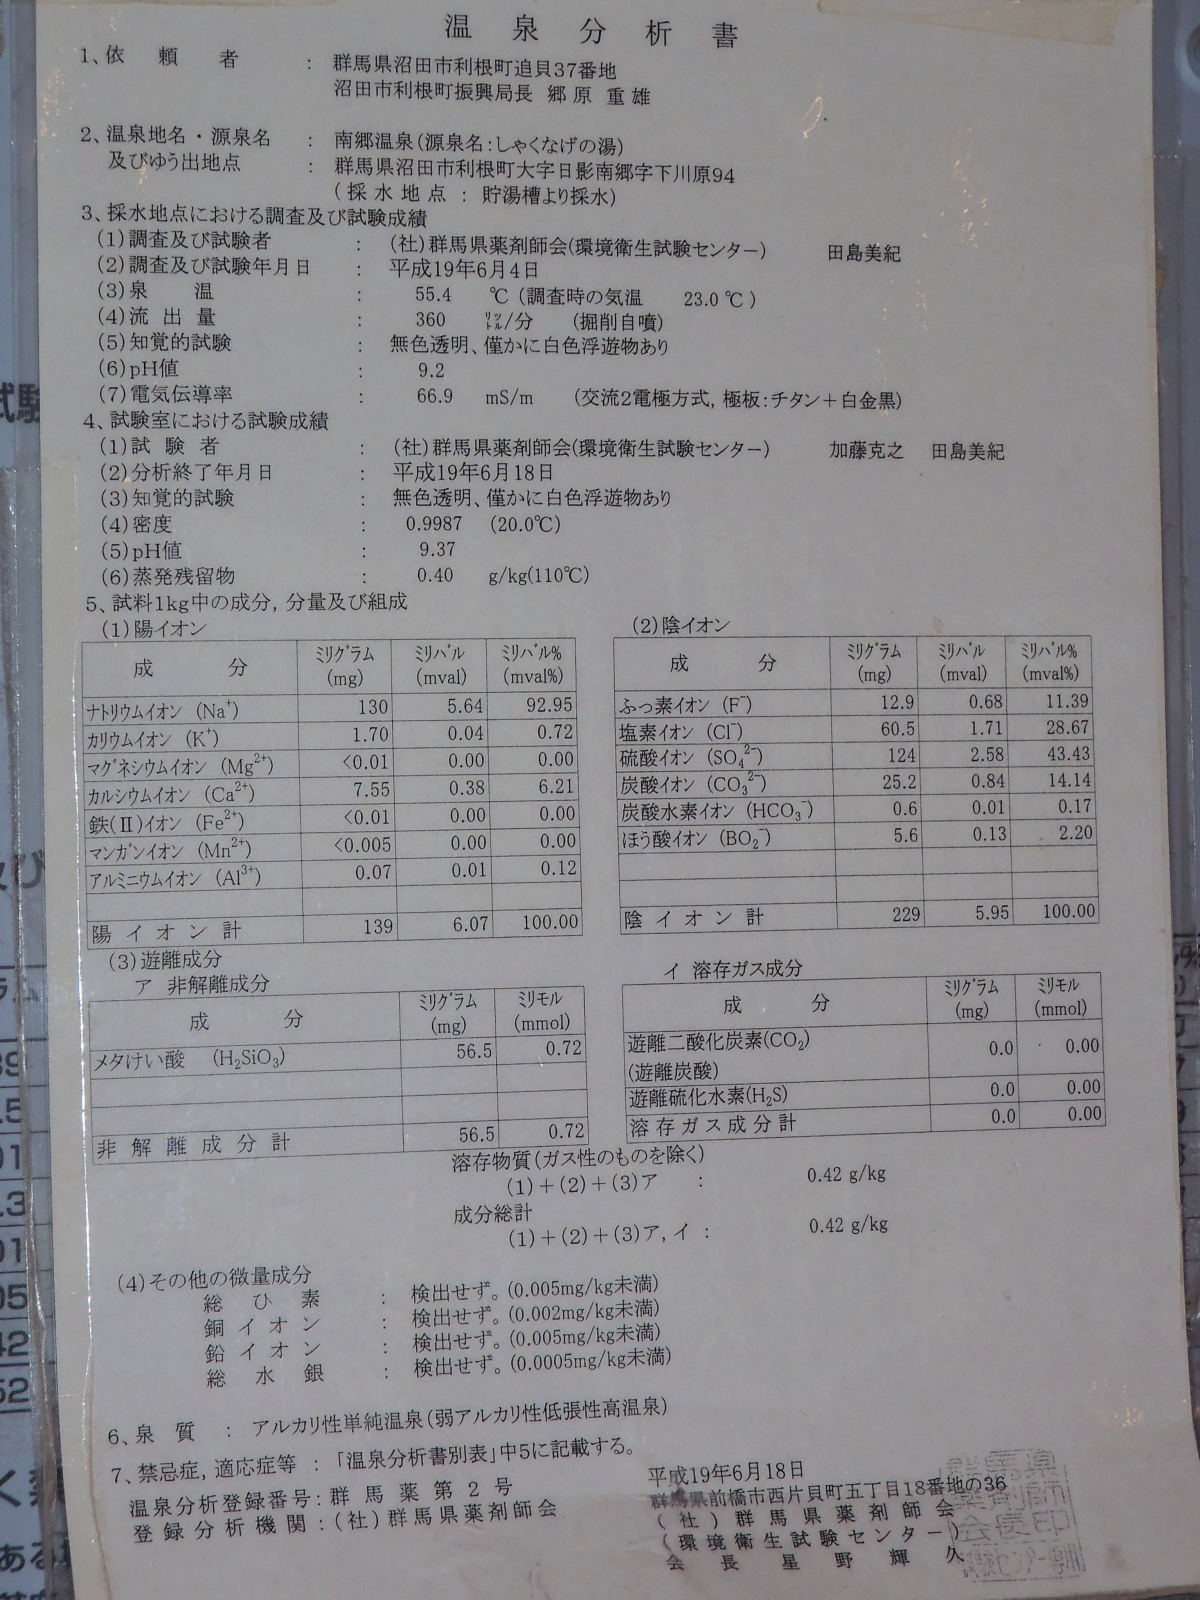 温泉分析書
1、依頼者 : 群馬県沼田市利根町追貝37番地
沼田市利根町振興局長 郷原 重雄
2、温泉地名・源泉名 : 南郷温泉(源泉名:しゃくなげの湯)
及びゆう出地点 : 群馬県沼田市利根町大字日影南郷字下川原94
(採水地点 : 貯湯槽より採水)
3、採水地点における調査及び試験成績
(1)調査及び試験者 : (社)群馬県薬剤師会(環境衛生試験センター) 田島美紀
(2)調査及び試験年月日 : 平成19年6月4日
(3)泉 温 : 55.4 ℃ (調査時の気温 23.0 ℃)
(4)流出量 : 360 リットル/分 (掘削自噴)
(5)知覚的試験 : 無色透明、僅かに白色浮遊物あり
(6)pH値 : 9.2
(7)電気伝導率 : 66.9 mS/m (交流2電極方式, 極板:チタン+白金黒)
4、試験室における試験成績
(1)試験者 : (社)群馬県薬剤師会(環境衛生試験センター) 加藤克之 田島美紀
(2)分析終了年月日 : 平成19年6月18日
(3)知覚的試験 : 無色透明、僅かに白色浮遊物あり
(4)密度 : 0.9987 (20.0℃)
(5)pH値 : 9.37
(6)蒸発残留物 : 0.40 g/kg(110℃)
5、試料1kg中の成分, 分量及び組成
(1)陽イオン
成 分 ミリグラム(mg) ミリバル(mval) ミリバル%(mval%)
ナトリウムイオン (Na⁺) 130 5.64 92.95
カリウムイオン (K⁺) 1.70 0.04 0.72
マグネシウムイオン (Mg²⁺) <0.01 0.00 0.00
カルシウムイオン (Ca²⁺) 7.55 0.38 6.21
鉄(Ⅱ)イオン (Fe²⁺) <0.01 0.00 0.00
マンガンイオン (Mn²⁺) <0.005 0.00 0.00
アルミニウムイオン (Al³⁺) 0.07 0.01 0.12
陽イオン計 139 6.07 100.00
(2)陰イオン
成 分 ミリグラム(mg) ミリバル(mval) ミリバル%(mval%)
ふっ素イオン (F⁻) 12.9 0.68 11.39
塩素イオン (Cl⁻) 60.5 1.71 28.67
硫酸イオン (SO₄²⁻) 124 2.58 43.43
炭酸イオン (CO₃²⁻) 25.2 0.84 14.14
炭酸水素イオン (HCO₃⁻) 0.6 0.01 0.17
ほう酸イオン (BO₂⁻) 5.6 0.13 2.20
陰イオン計 229 5.95 100.00
(3)遊離成分
ア 非解離成分
成 分 ミリグラム(mg) ミリモル(mmol)
メタけい酸 (H₂SiO₃) 56.5 0.72
非解離成分計 56.5 0.72
イ 溶存ガス成分
成 分 ミリグラム(mg) ミリモル(mmol)
遊離二酸化炭素(CO₂) 0.0 0.00
(遊離炭酸)
遊離硫化水素(H₂S) 0.0 0.00
溶存ガス成分計 0.0 0.00
溶存物質(ガス性のものを除く)
(1)+(2)+(3)ア : 0.42 g/kg
成分総計
(1)+(2)+(3)ア, イ : 0.42 g/kg
(4)その他の微量成分
総ひ素 : 検出せず。(0.005mg/kg未満)
銅イオン : 検出せず。(0.002mg/kg未満)
鉛イオン : 検出せず。(0.005mg/kg未満)
総水銀 : 検出せず。(0.0005mg/kg未満)
6、泉質 : アルカリ性単純温泉(弱アルカリ性低張性高温泉)
7、禁忌症, 適応症等 : 「温泉分析書別表」中5に記載する。
温泉分析登録番号:群馬薬第2号
登録分析機関:(社)群馬県薬剤師会
平成19年6月18日
群馬県前橋市西片貝町五丁目18番地の36
(社)群馬県薬剤師会
(環境衛生試験センター)
会長 星野輝久
群馬県
薬剤師
会長印